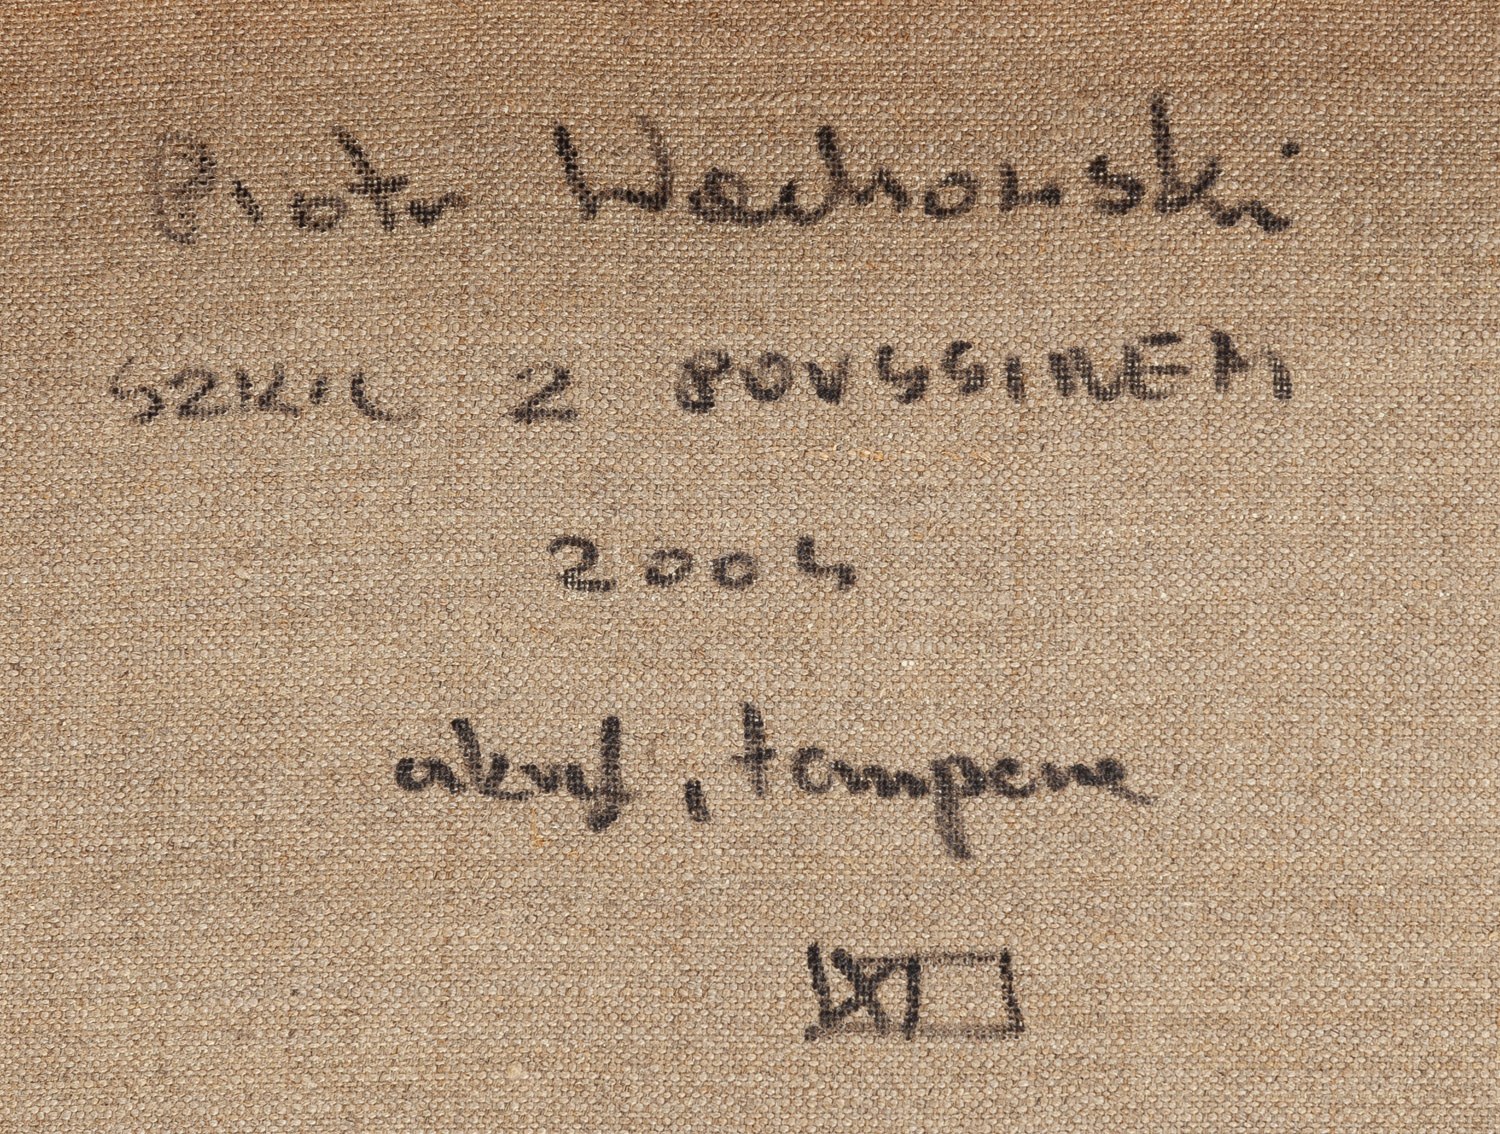 Piotr Wachowski
SZKIC Z POUSSINEM
2004
akryl, tempera